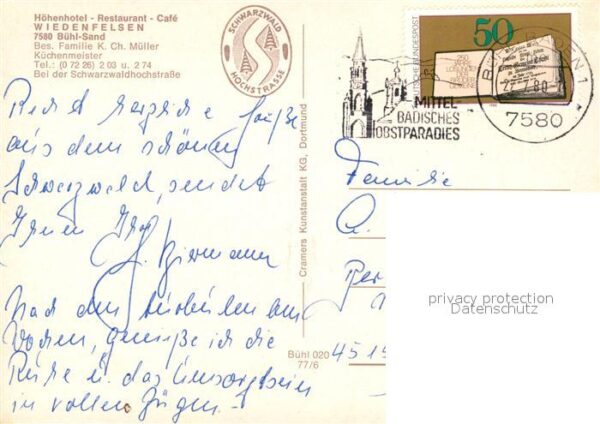 Höhenhotel - Restaurant - Café
WIEDENFELSEN
7580 Bühl-Sand
Bes. Familie K. Ch. Müller
Küchenmeister
Tel.: (0 72 26) 2 03 u. 2 74
Bei der Schwarzwaldhochstraße
SCHWARZWALD
HOCHSTRASSE
DEUTSCHE BUNDESPOST
50
80
7580
MITTEL
BADISCHES
OBSTPARADIES
Recht herzliche Grüße
aus dem schönen
Schwarzwald, sendet
Ihnen
Nach den
Wochen, genieße ich die
Ruhe u. das Umsorgtsein
in vollen Zügen.
Cramers Kunstanstalt KG, Dortmund
Bühl 020
77/6
Familie
privacy protection
Datenschutz